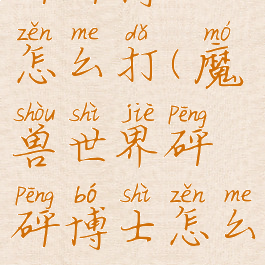 zěn me dǎ mó
怎么打(魔
shòu shì jiè Pēng
兽世界砰
Pēng bó shì zěn me
砰博士怎么